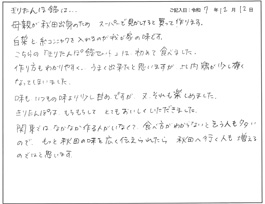 ご記入日：令和 7 年 12 月 12 日
きりたんぽ鍋は…
母親が秋田出身のため スーパーで見かけると買って作ります。
白菜と糸こんにゃくを入れるのが我が家の味です。
こちらの「きりたんぽ鍋セット」は、初めて食べました。
作り方もわかりやすく、うまく出来たと思いますが、比内鶏が少し硬く
なってしまいました。
味もいつもの味より少し甘めですが、又、それも楽しめました。
きりたんぽは もちもちして とてもおいしくいただきました。
関東では なかなか作る人がいなくて 食べ方がわからないと言う人も多い
ので、もっと秋田の味を広く伝えられたら 秋田へ行く人も増える
のではと思います。